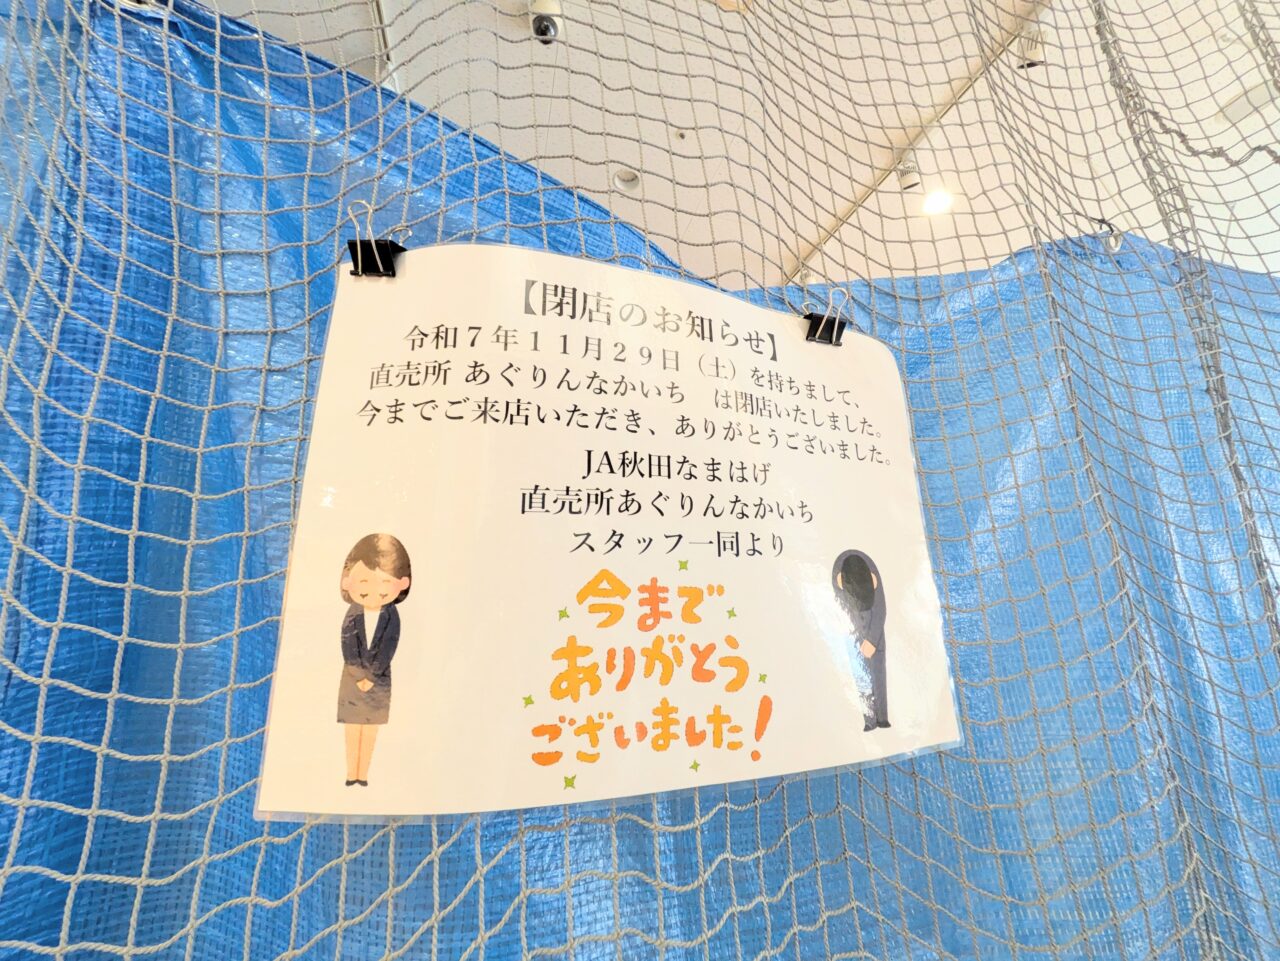 【閉店のお知らせ】
令和７年１１月２９日（土）を持ちまして、
直売所 あぐりんなかいち　は閉店いたしました。
今までご来店いただき、ありがとうございました。
JA秋田なまはげ
直売所あぐりんなかいち
スタッフ一同より
今まで
ありがとう
ございました！